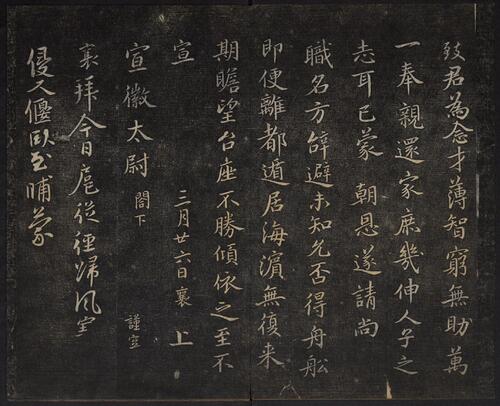 致君為念才薄智窮無助萬
一奉親還家庶幾伸人子之
志耳已蒙 朝恩遂請尚
職名方辝避未知允否得舟舩
即便離都遁居海濵無復来
期瞻望台座不勝傾依之至不
宣 三月廿六日襄 上
宣徽太尉 閤下 謹空
襄拜今日扈従徑歸風寒
侵人偃臥至晡蒙